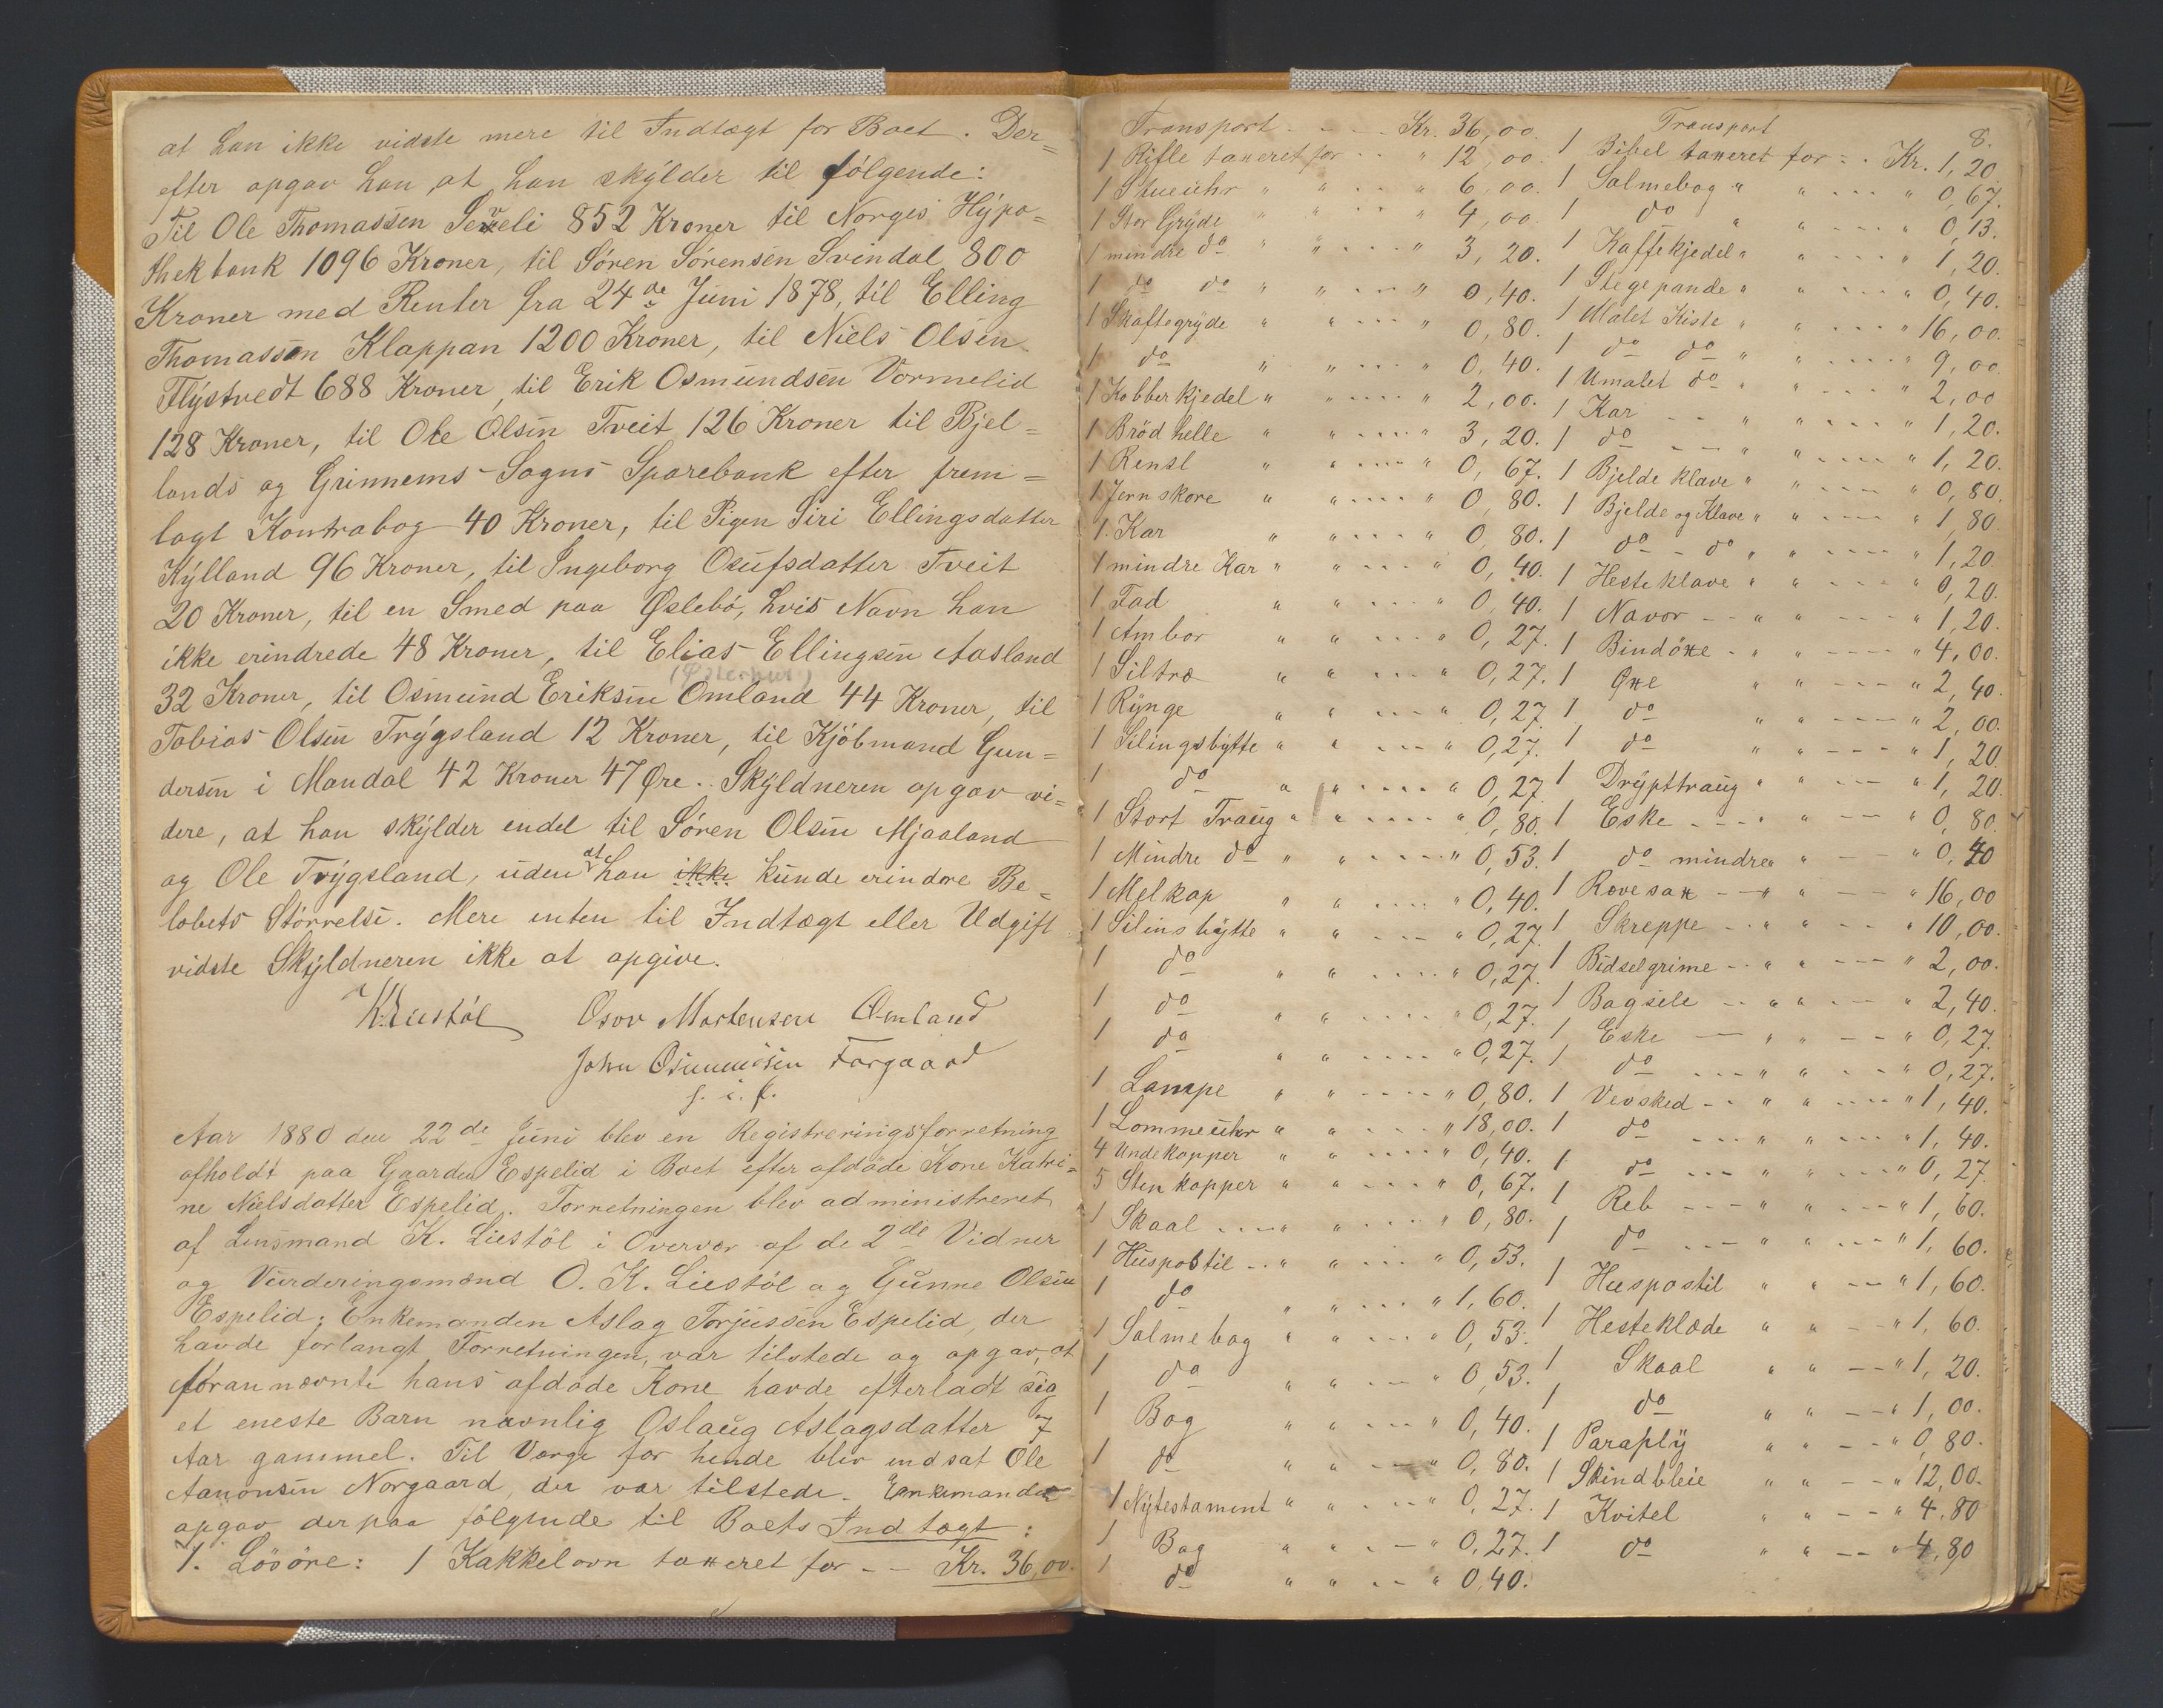 at han ikke vidste mere til Indtægt for Boet. Der=
efter opgav han, at han skÿlder til følgende:
Til Ole Thomassen Seveli 852 Kroner til Norges Hÿpo=
thekbank 1096 Kroner, til Sören Sörensen Svindal 800
Kroner med Renter fra 24de Juni 1878, til Elling
Thomassen Klappan 1200 Kroner, til Niels Olsen
Flÿstvedt 688 Kroner, til Erik Osmundsen Vormelid
128 Kroner, til Ole Olsen Tveit 126 Kroner til Bjel=
lands og Grinnems Sogns Sparebank efter frem=
lagt Kontrabog 40 Kroner, til Pigen Siri Ellingsdatter
Kÿlland 96 Kroner, til Ingeborg Osufsdatter Tveit
20 Kroner, til en Smed paa Øslebö, hvis Navn han
ikke erindrede 48 Kroner, til Elias Ellingsen Aasland
(Østerhus)
32 Kroner, til Osmund Eriksen Omland 44 Kroner, til
Tobias Olsen Trÿgsland 12 Kroner, til Kjöbmand Gun=
dersen i Mandal 42 Kroner 47 Øre. Skÿldneren opgav vi=
dere, at han skÿlder endel til Sören Olsen Mjaaland
og Ole Trÿgsland, uden at han ikke kunde erindre Be=
löbets Störrelse. Mere enten til Indtægt eller Udgift
vidste Skÿldneren ikke at opgive.
K Liestöl Osov Mortensen Omland
John Osmundsen Forgaard
s. i. f.
Aar 1880 den 22de Juni blev en Registreringsforretning
afholdt paa Gaarden Espelid i Boet efter afdöde Kone Katri=
ne Nielsdatter Espelid. Forretningen blev administreret
af Lensmand K. Liestöl i Overvær af de 2de Vidner
og Vurderingsmænd O. K. Liestöl og Gunne Olsen
Espelid; Enkemanden Aslag Torjussen Espelid, der
havde forlangt Forretningen, var tilstede og opgav, at
forannævnte hans afdöde Kone havde efterladt sig
et eneste Barn navnlig Oslaug Aslagsdatter 7
Aar gammel. Til Værge for hende blev indsat Ole
Aanonsen Norgaard, der var tilstede. Enkemanden
opgav derpaa fölgende til Boets Indtægt:
1. Lösöre: 1 Kakkelovn taxeret for -- Kr. 36,00.
Transport - - - - Kr. 36,00.
1 Rifle taxeret for - - " 12,00.
1 Stueuhr " " - - - " 6,00.
1 Stor Grÿde " " - - - " 4,00.
1 mindre do " " - - - - " 3,20.
1 do do " " - - - " 0,40.
1 Skaftegrÿde " " - - - " 0,80.
1 do " " - - - - " 0,40.
1 Kobberkjedel " " - - - - " 2,00.
1 Brödhelle " " - - - - " 3,20.
1 Rensl " " - - - - " 0,67.
1 Jernskore " " - - - - " 0,80.
1 Kar " " - - - - " 0,80.
1 mindre Kar " " - - - - " 0,40.
1 Fad " " - - - - " 0,40.
1 Ambor " " - - - " 0,27.
1 Siltræ " " - - - " 0,27.
1 Rÿnge " " - - - " 0,27.
1 Silingsbÿtte " " - - - " 0,27.
1 do " " - - - - " 0,27
1 Stort Traug " " - - - - " 0,80.
1 Mindre do " " - - - - " 0,53.
1 Melkap " " - - - - " 0,40.
1 Silinsbÿtte " " - - - " 0,27.
1 do " " - - - - " 0,27.
1 do " " - - - - " 0,27.
1 do " " - - - - " 0,27.
1 Lampe " " - - - - " 0,80.
1 Lommeuhr " " - - - - " 18,00.
4 Undekopper " " - - - - " 0,40.
5 Stenkopper " " - - - - " 0,67.
1 Skaal - - - - " " - - - - " 0,80.
1 Huspostil - - " " - - - - " 0,53.
1 do " " - - - " 1,60.
1 Salmebog " " - - - " 0,53.
1 do " " - - - " 0,53.
1 Bog " " - - - " 0,40.
1 do " " - - - " 0,80.
1 Nÿtestament " " - - - - " 0,27.
1 Bog " " - - " 0,27.
1 do " " - - " 0,40.
8.
Transport
1 Bibel taxeret for - - Kr. 1,20.
1 Salmebog " " - - - - " 0,67.
1 do " " - - - - " 0,13.
1 Kaffekjedel " " - - - - " 1,20.
1 Stegepande " " - - - - " 0,40.
1 Malet Kiste " " - - - - " 16,00.
1 do do " " - - - - " 9,00.
1 Umalet do " " - - - - " 2,00
1 Kar - - " " - - - - " 1,20.
1 do - - - " " - - - - " 1,20.
1 Bjeldeklave " " - - - - " 0,80.
1 Bjelde og Klave " " - - - - " 1,80.
1 do - do " " - - - - " 1,20.
1 Hesteklave " " - - - - " 0,20.
1 Navor - - " " - - - - " 1,20.
1 Bindöxe - " " - - - - " 4,00.
1 Øxe " " - - - " 2,40.
1 do " " - - - - " 2,00.
1 do " " - - - - " 1,20.
1 Drÿpttraug " " - - - " 1,20.
1 Eske - - - - " " - - - " 0,80.
1 do mindre " " - - - " 0,40
1 Rævesax - - " " - - - " 16,00
1 Skreppe - - " " - - - " 10,00.
1 Bidselgrime - - " " - - - " 2,00.
1 Bagsele - - " " - - - " 2,40.
1 Eske - - " " - - - " 0,27.
1 do - - - " " - - - " 0,27.
1 Vevsked - - " " - - - - " 1,40.
1 do - - - " " - - - - " 1,40.
1 do - - - " " - - - - " 0,27
1 Reb - - - - " " - - - - " 1,60.
1 do - - - " " - - - - " 1,60.
1 Huspostil " " - - - " 1,60.
1 Hesteklæde " " - - - " 1,60.
1 Skaal " " - - - " 1,20.
1 do " " - - - " 1,00.
1 Paraplÿ " " - - - " 0,80.
1 Skindbleie " " - - - " 12,00.
1 Kvitel " " - - - " 4,80
1 do " " - - - " 4,80